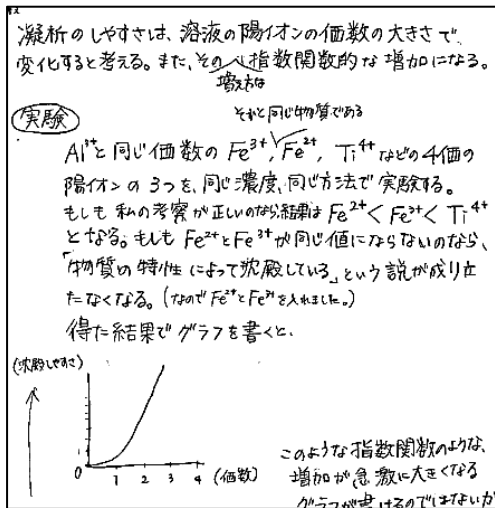 凝析のしやすさは、溶液の陽イオンの価数の大きさで、
変化すると考える。また、その増え方は指数関数的な増加になる。
実験
それと同じ物質である
Al³⁺と同じ価数のFe³⁺, Fe²⁺, Ti⁴⁺などの4価の
陽イオンの3つを、同じ濃度、同じ方法で実験する。
もしも私の考察が正しいのなら結果はFe²⁺<Fe³⁺<Ti⁴⁺
となる。もしもFe²⁺とFe³⁺が同じ値にならないのなら、
「物質の特性によって沈殿している」という説が成り立
たなくなる。(なのでFe²⁺とFe³⁺を入れました。)
得た結果でグラフを書くと、
(沈殿しやすさ)
0 1 2 3 4 (価数)
このような指数関数のような、
増加が急激に大きくなる
グラフが書けるのではないか